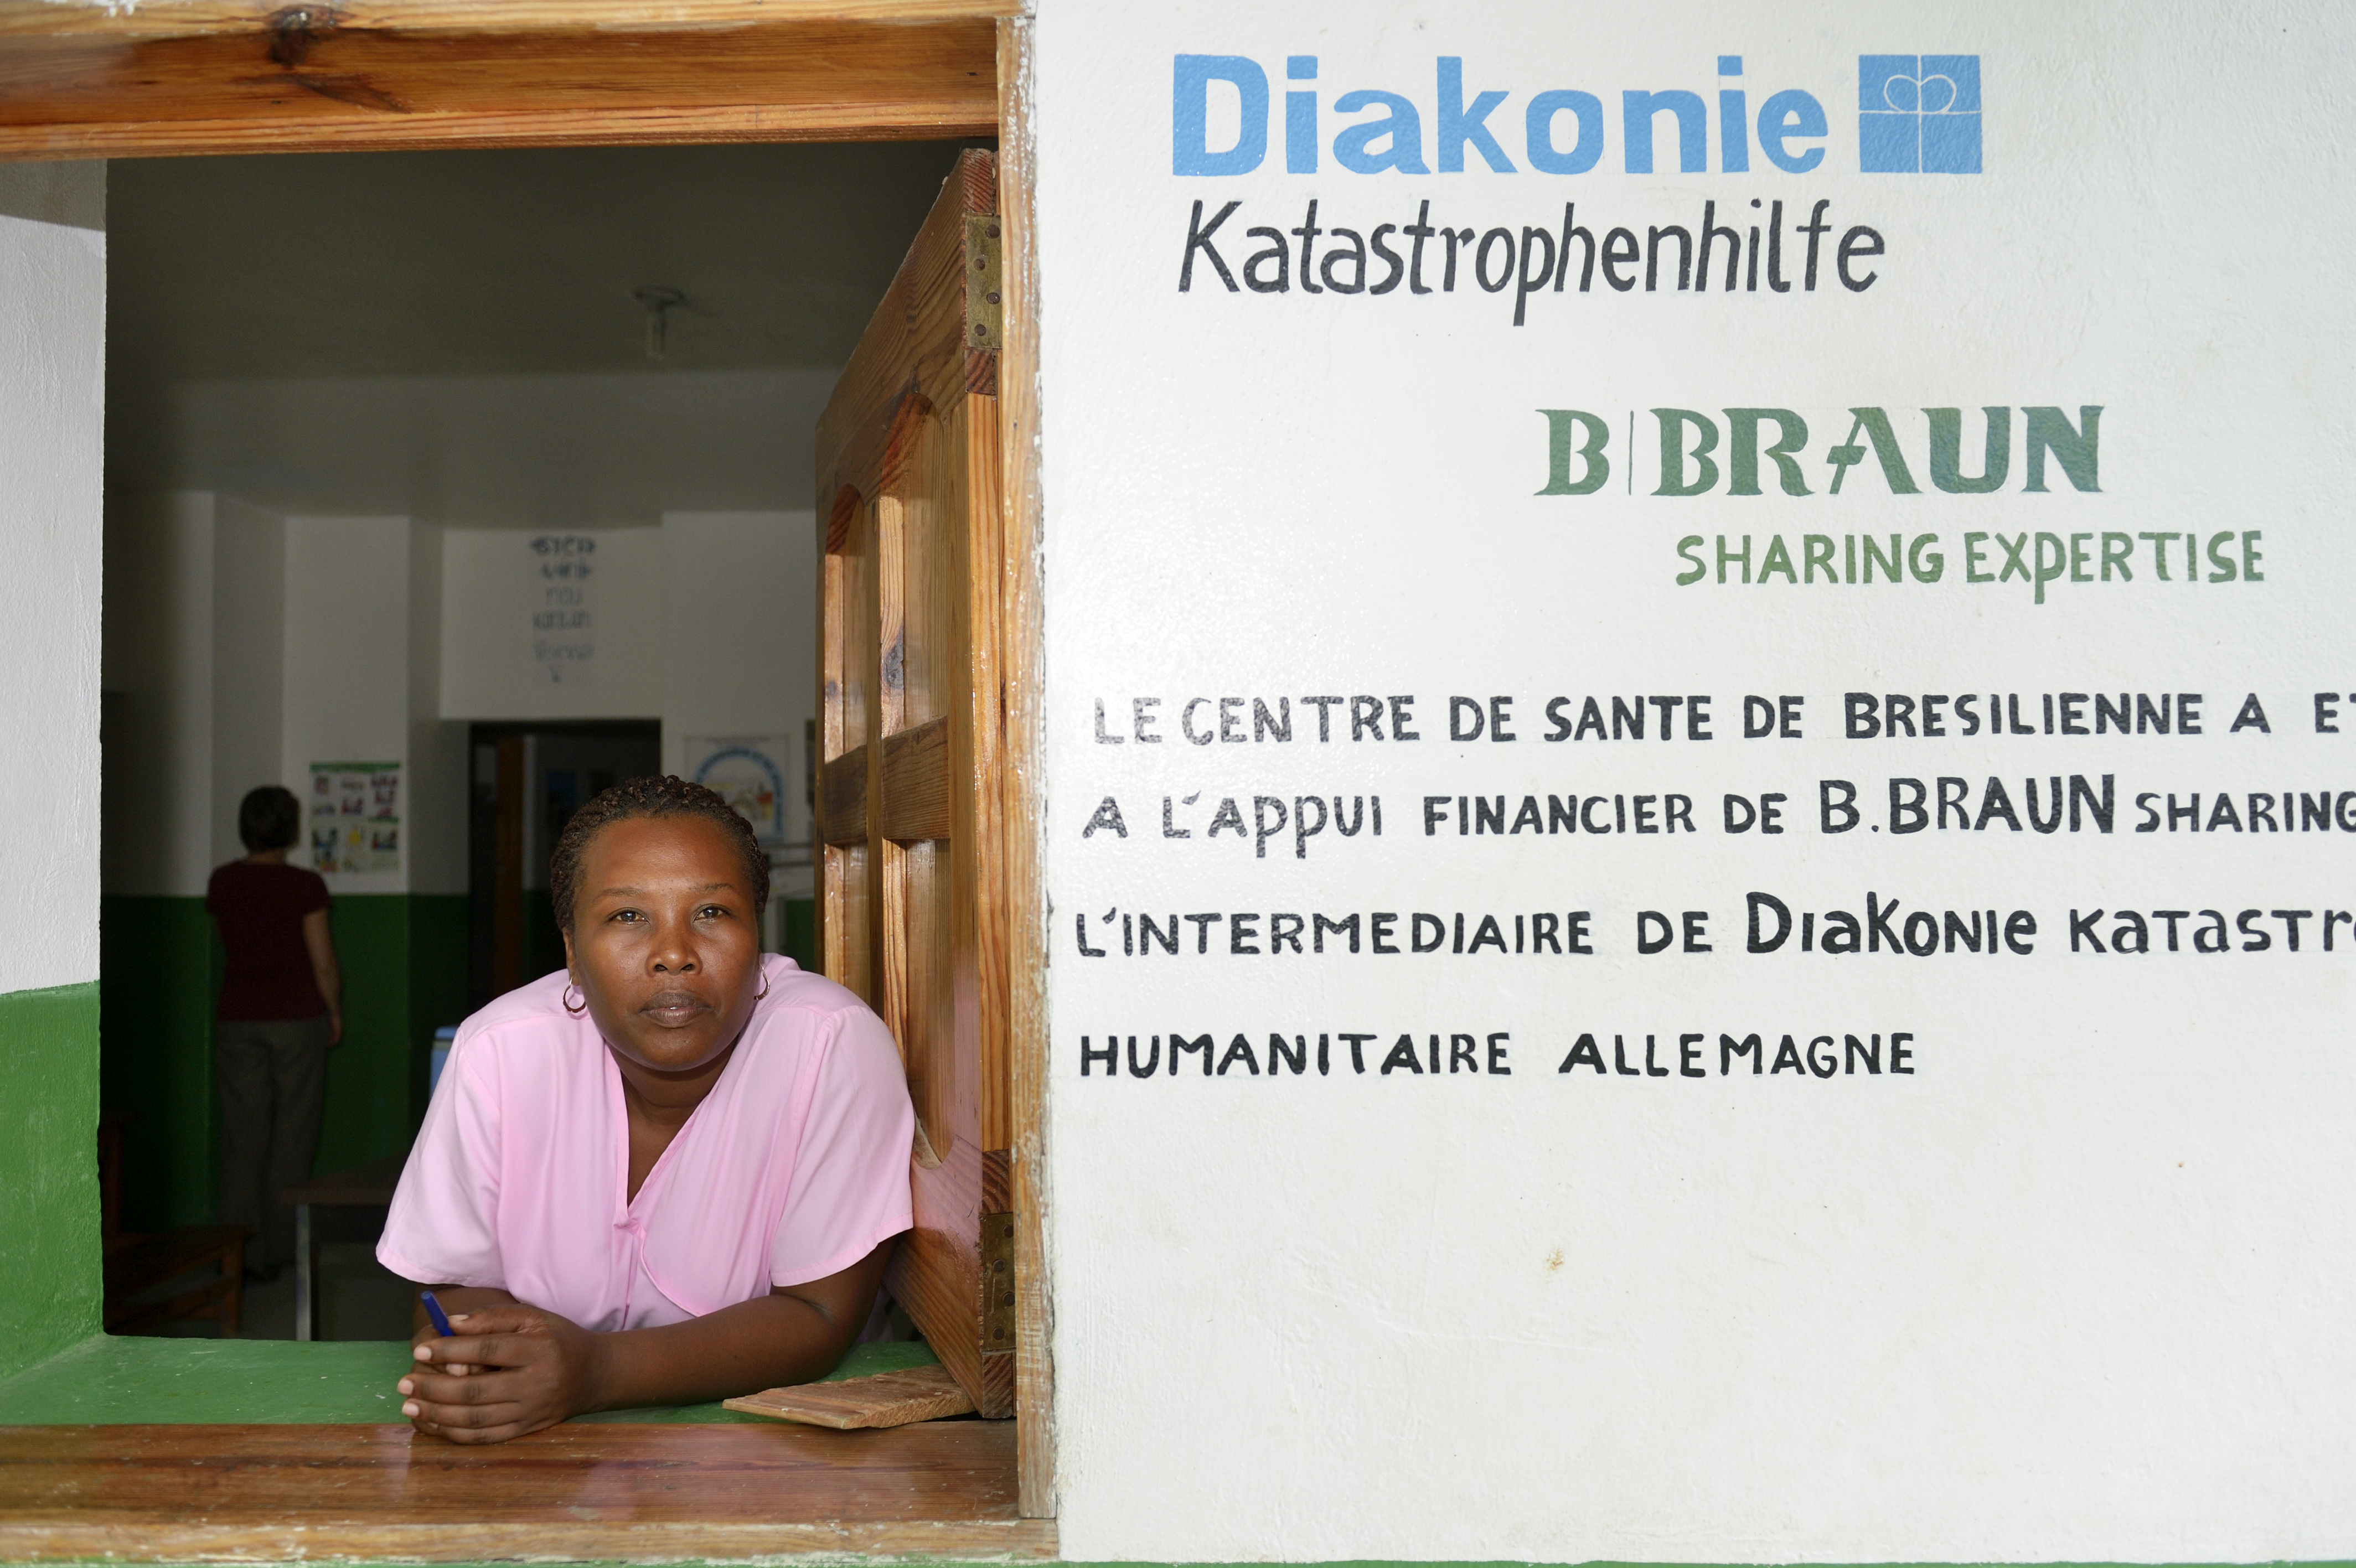 Diakonie
Katastrophenhilfe
B|BRAUN
SHARING EXPERTISE
LE CENTRE DE SANTE DE BRESILIENNE A ET
A L'APPUI FINANCIER DE B.BRAUN SHARING
L'INTERMEDIAIRE DE DIaKONIe KaTaSTr
HUMANITAIRE ALLEMAGNE